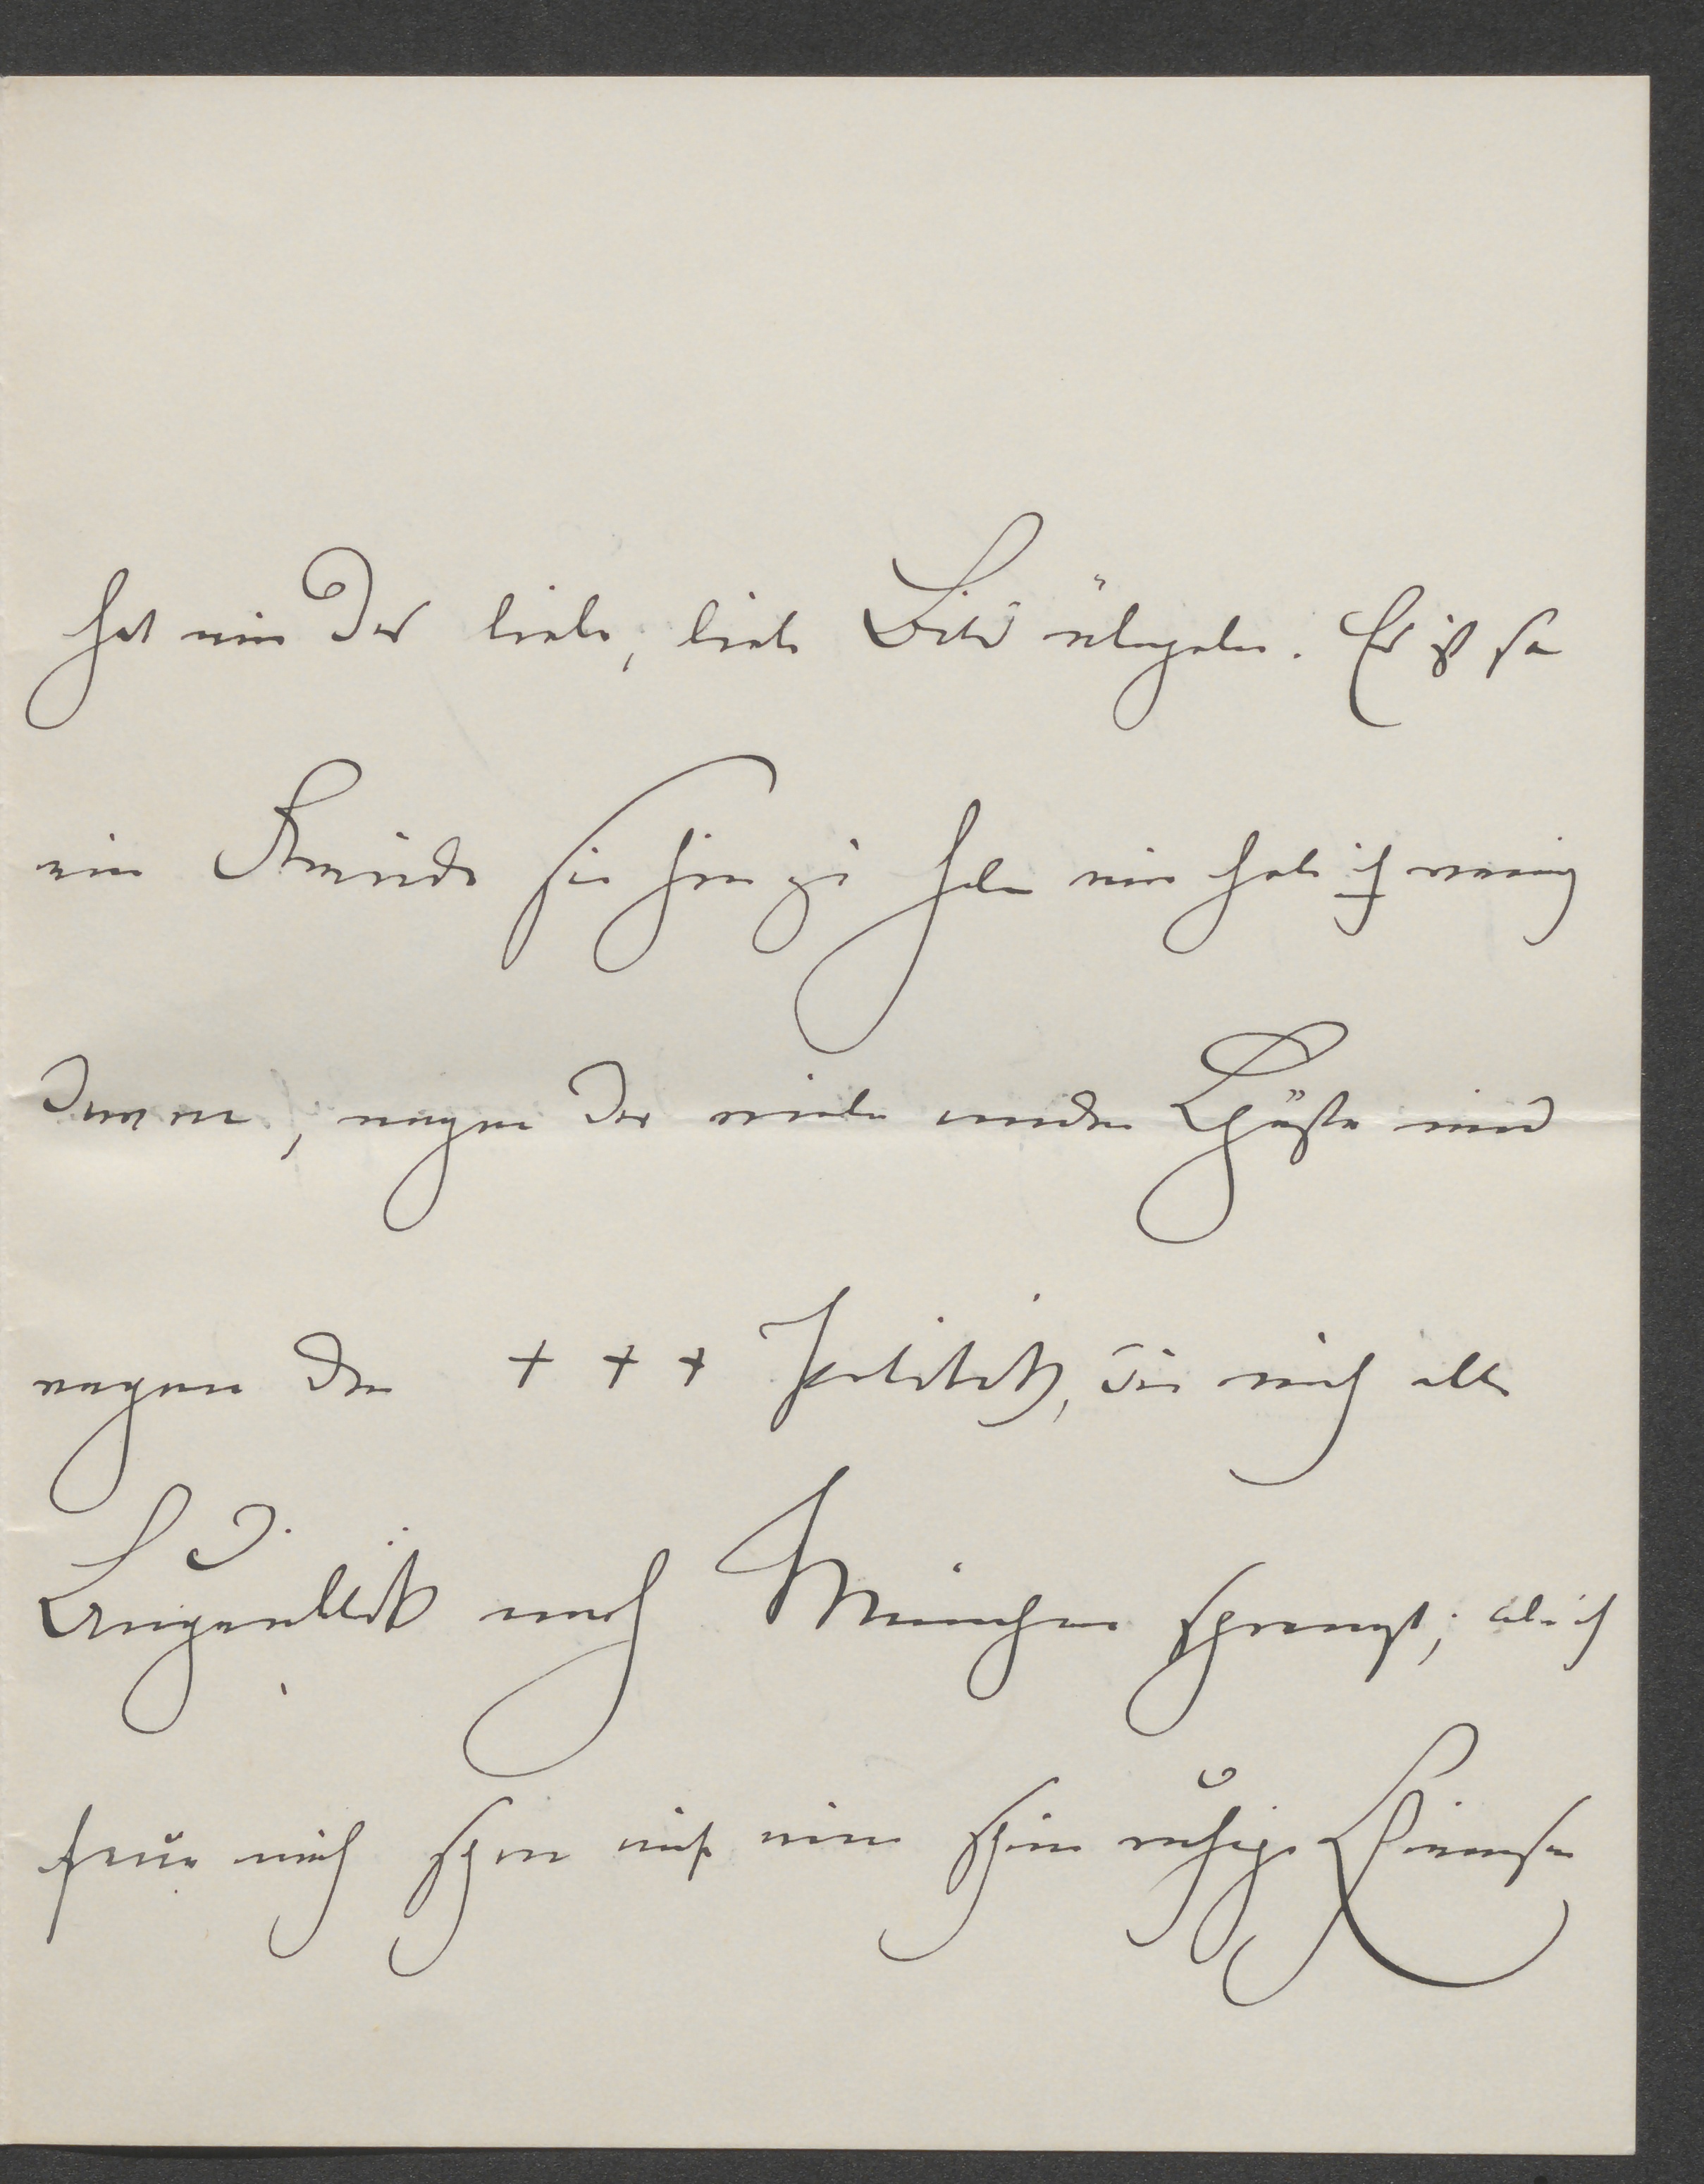 hat mir das liebe, liebe Bild übergeben. Es ist so
eine Freude sie hier zu haben nur habe ich wenig
davon, wegen der vielen anderen Gäste und
wegen der + + + Politik, die mich alle
Augenblick nach München sprengt; aber ich
freue mich schon auf eine schöne ruhige